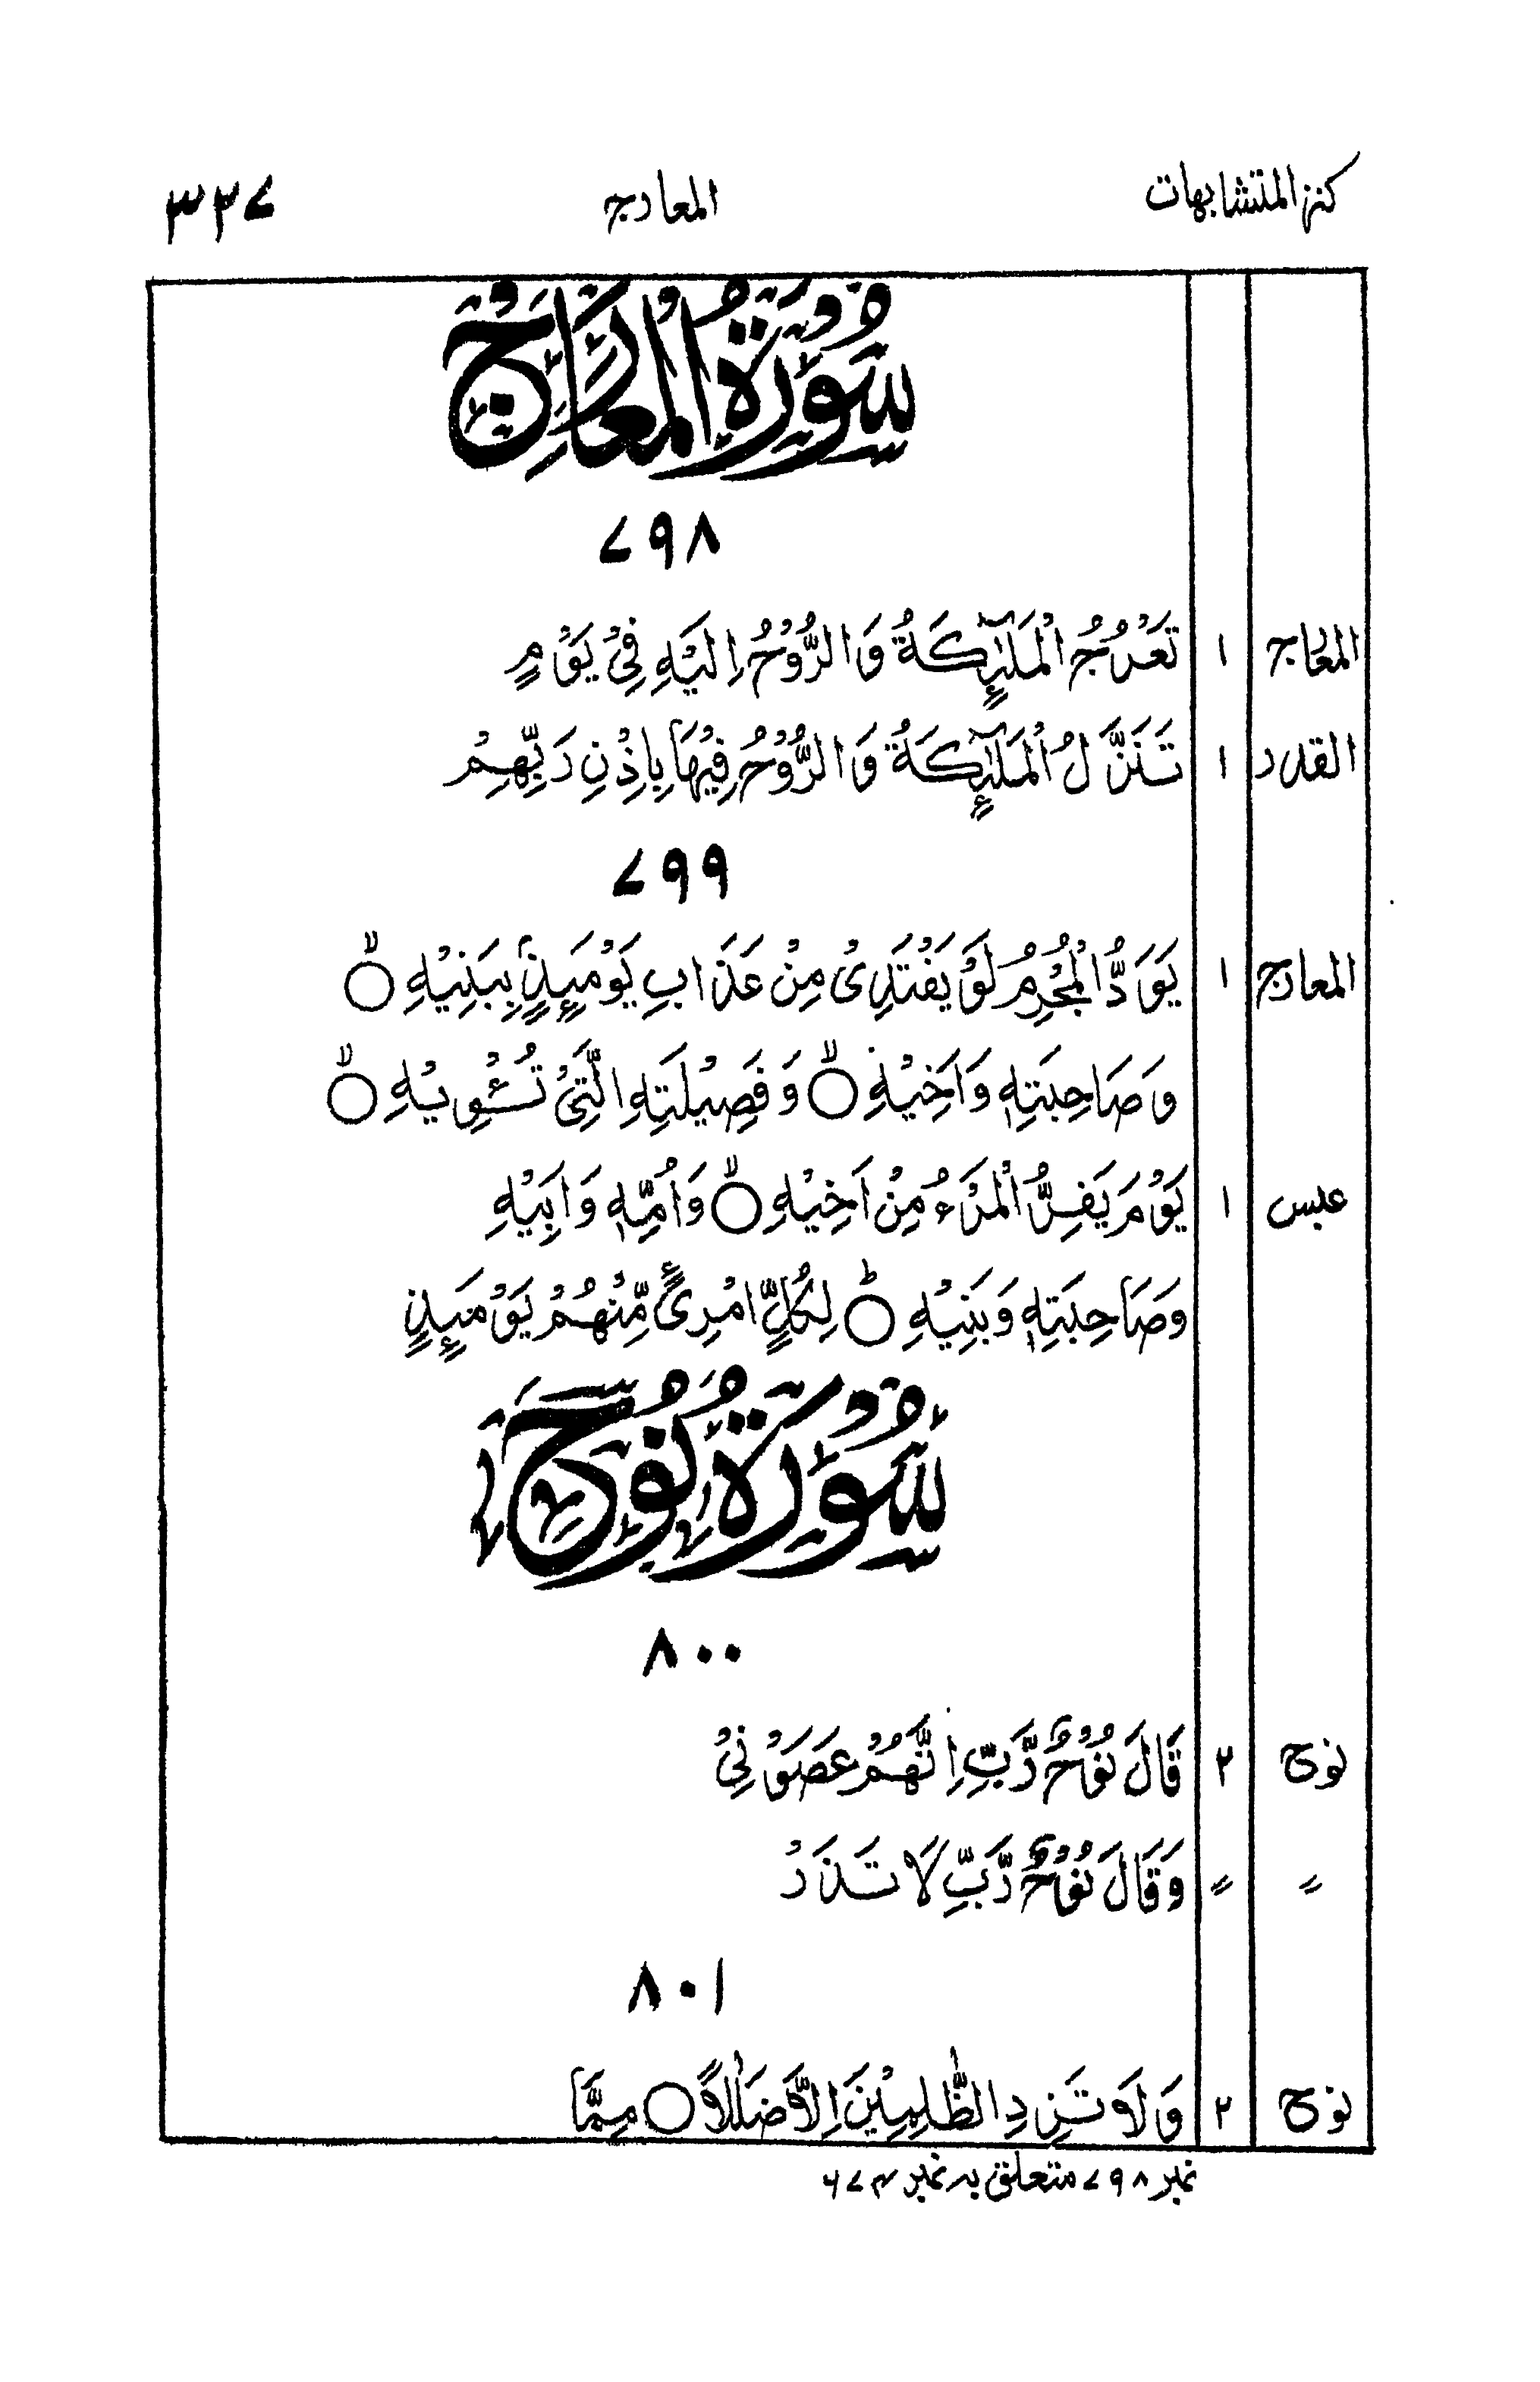 كنز المتشابهات المعارج ۳۲۷
سُوْرَةُ الْمَعَارِجِ
۷۹۸
المعارج ۱ تَعْرُجُ الْمَلٰٓئِكَةُ وَالرُّوْحُ اِلَيْهِ فِيْ يَوْمٍ
القدر ۱ تَنَزَّلُ الْمَلٰٓئِكَةُ وَالرُّوْحُ فِيْهَا بِاِذْنِ رَبِّهِمْ
۷۹۹
المعارج ۱ يَوَدُّ الْمُجْرِمُ لَوْ يَفْتَدِىْ مِنْ عَذَابِ يَوْمَئِذٍۭ بِبَنِيْهِ ○ۙ
وَصَاحِبَتِهٖ وَاَخِيْهِ ○ۙ وَفَصِيْلَتِهِ الَّتِىْ تُــْٔوِيْهِ ○ۙ
عبس ۱ يَوْمَ يَفِرُّ الْمَرْءُ مِنْ اَخِيْهِ ○ۙ وَاُمِّهٖ وَاَبِيْهِ
وَصَاحِبَتِهٖ وَبَنِيْهِ ○ؕ لِكُلِّ امْرِئٍ مِّنْهُمْ يَوْمَئِذٍ
سُوْرَةُ نُوْحٍ
۸۰۰
نوح ۲ قَالَ نُوْحٌ رَّبِّ اِنَّهُمْ عَصَوْنِيْ
〃 〃 وَقَالَ نُوْحٌ رَّبِّ لَا تَذَرْ
۸۰۱
نوح ۲ وَلَا تَزِدِ الظّٰلِمِيْنَ اِلَّا ضَلٰلًا ○ مِمَّا
نمبر ۷۹۸ متعلق بہ نمبر ۶۷۴